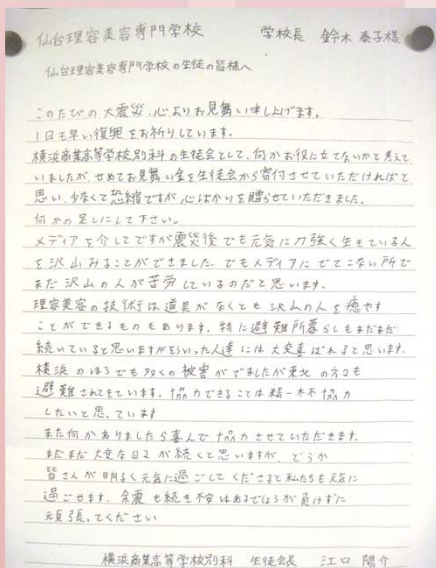 仙台理容美容専門学校 学校長 鈴木 泰子様
仙台理容美容専門学校の生徒の皆様へ
このたびの大震災、心よりお見舞い申し上げます。
1日も早い復興をお祈りしています。
横浜商業高等学校別科の生徒会として、何かお役に立てないかと考えて
いましたが、せめてお見舞い金を生徒会から寄付させていただければと
思い、少なくて恐縮ですが心ばかりを贈らせていただきました。
何かの足しにして下さい。
メディアを介してですが震災後でも元気に力強く生きている人
を沢山みることができました。でもメディアにでてこない所で
まだ沢山の人が苦労しているのだと思います。
理容美容の技術は道具がなくとも沢山の人を癒やす
ことができるものもあります。特に避難所暮らしもまだまだ
続いていると思いますがそういった人達には大変喜ばれると思います。
横浜のほうでも多くの被害がでましたが東北の方々も
避難されてきています。協力できることは精一杯協力
したいと思っています
また何かありましたら喜んで協力させていただきます。
まだまだ大変な日々が続くと思いますが、どうか
皆さんが明るく元気に過ごしてくださると私たちも元気に
過ごせます。余震も続き不安はあるでしょうが負けずに
頑張ってください
横浜商業高等学校別科 生徒会長 江口 陽介